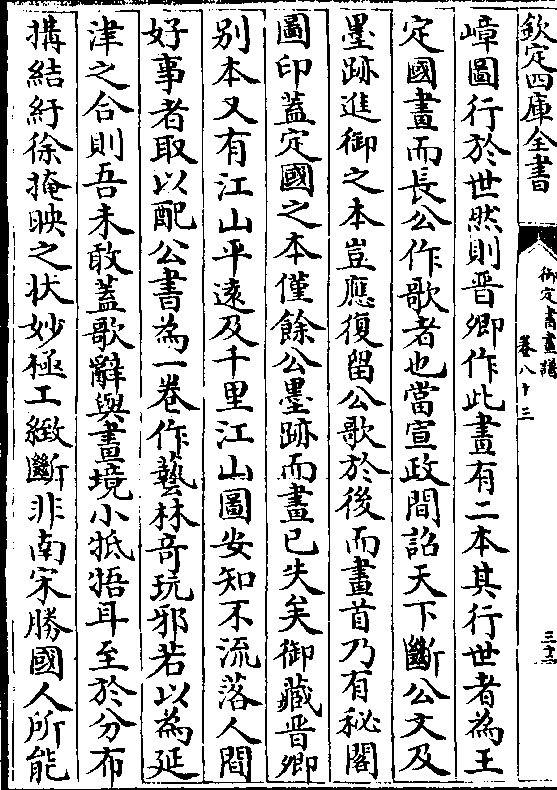 欽定四庫全書
御定書畫譜
卷八十三
三十三
嶂圖行於世然則晋卿作此畫有二本其行世者為王
定國畫而長公作歌者也當宣政間詔天下斷公文及
墨跡進御之本豈應復留公歌於後而畫首乃有秘閣
圖印蓋定國之本僅餘公墨跡而畫已失矣御藏晋卿
别本又有江山平逺及千里江山圖安知不流落人間
好事者取以配公書為一卷作藝林竒玩邪若以為延
津之合則吾未敢蓋歌辭與畫境小牴牾耳至於分布
搆結紆徐掩映之状妙極工緻斷非南宋勝國人所能